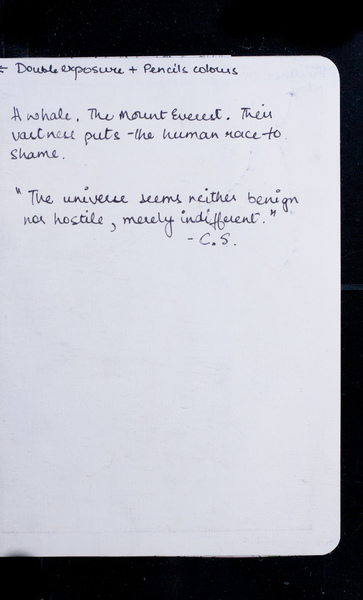 ← Double exposure + Pencils colours
A whale. The Mount Everest. Their
vastness puts the human race to
shame.
"The universe seems neither benign
nor hostile, merely indifferent."
- C.S.